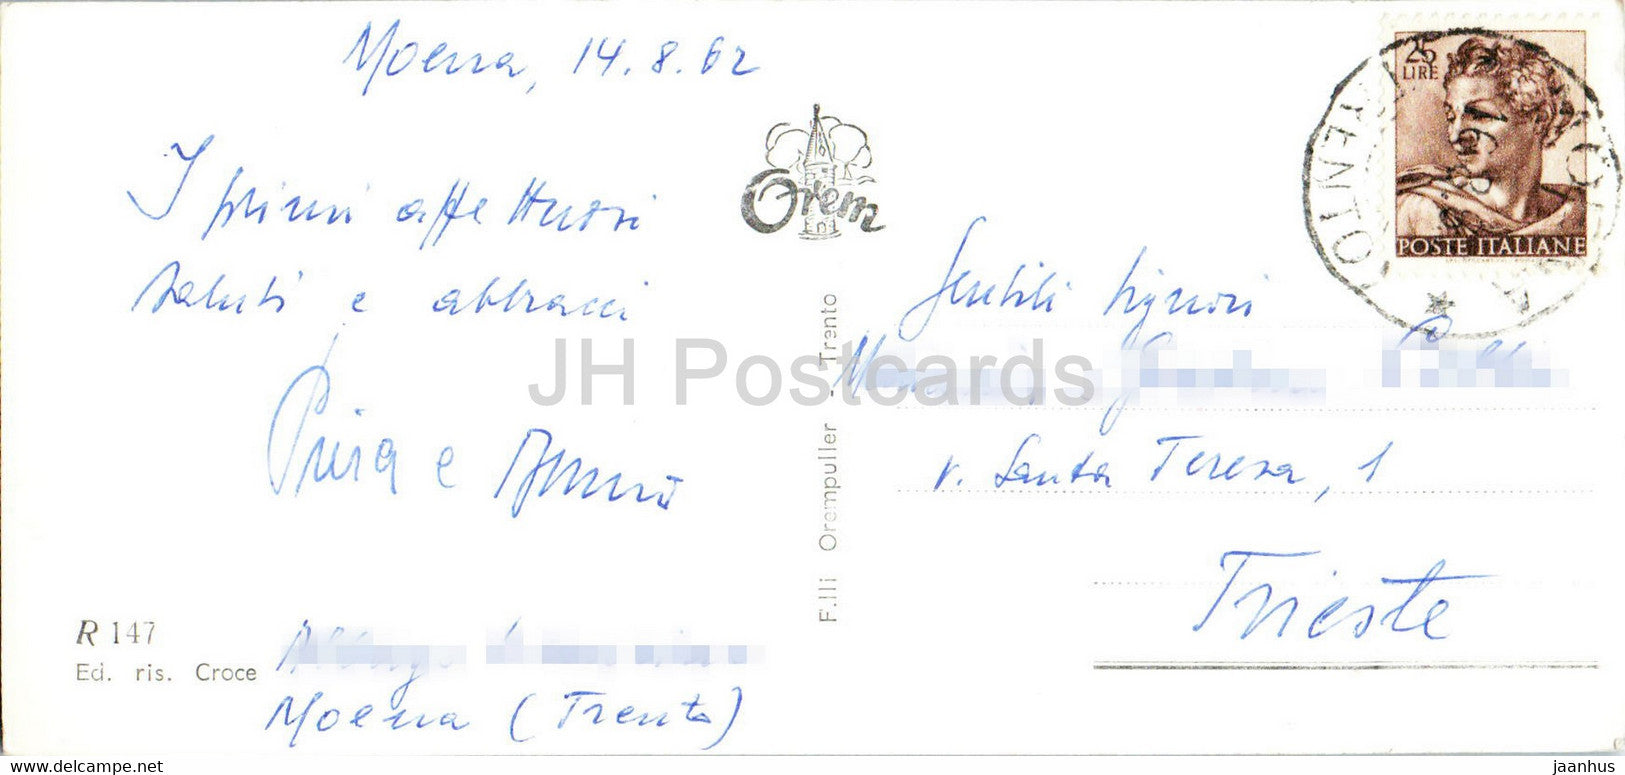 Moena, 14.8.62
I primi affettuosi
saluti e abbracci
e Bruno
R 147
Ed. ris. Croce
Moena (Trento)
Orem
F.lli Orempuller - Trento
JH Postcards
25
LIRE
POSTE ITALIANE
Gentili Signori
v. Santa Teresa, 1
Trieste
jaanhus